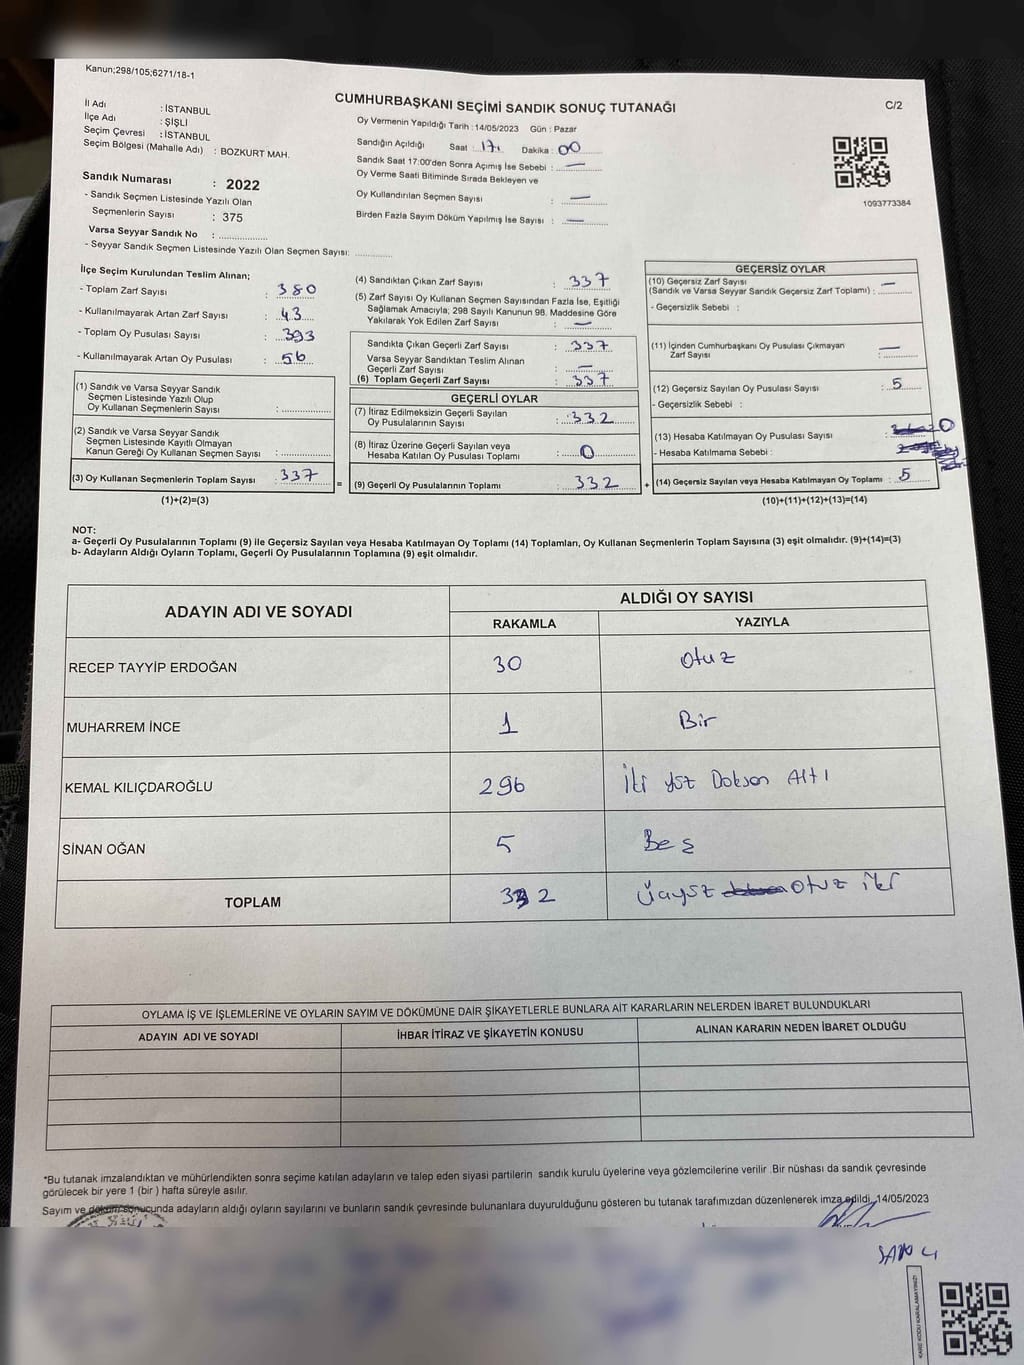 Kanun;298/105;6271/18-1
CUMHURBAŞKANI SEÇİMİ SANDIK SONUÇ TUTANAĞI
C/2
İl Adı : İSTANBUL
İlçe Adı : ŞİŞLİ
Seçim Çevresi : İSTANBUL
Seçim Bölgesi (Mahalle Adı) : BOZKURT MAH.
Sandık Numarası : 2022
- Sandık Seçmen Listesinde Yazılı Olan
Seçmenlerin Sayısı : 375
Varsa Seyyar Sandık No : ................
- Seyyar Sandık Seçmen Listesinde Yazılı Olan Seçmen Sayısı: ............
Oy Vermenin Yapıldığı Tarih : 14/05/2023 Gün : Pazar
Sandığın Açıldığı Saat : 17. Dakika : 00
Sandık Saat 17:00'den Sonra Açımış İse Sebebi : —
Oy Verme Saati Bitiminde Sırada Bekleyen ve
Oy Kullandırılan Seçmen Sayısı : —
Birden Fazla Sayım Döküm Yapılmış İse Sayısı : —
1093773384
İlçe Seçim Kurulundan Teslim Alınan;
- Toplam Zarf Sayısı : 380
- Kullanılmayarak Artan Zarf Sayısı : 43
- Toplam Oy Pusulası Sayısı : 393
- Kullanılmayarak Artan Oy Pusulası : 56
(1) Sandık ve Varsa Seyyar Sandık
Seçmen Listesinde Yazılı Olup
Oy Kullanan Seçmenlerin Sayısı : ............
(2) Sandık ve Varsa Seyyar Sandık
Seçmen Listesinde Kayıtlı Olmayan
Kanun Gereği Oy Kullanan Seçmen Sayısı : ............
(3) Oy Kullanan Seçmenlerin Toplam Sayısı : 337
(1)+(2)=(3)
=
(4) Sandıktan Çıkan Zarf Sayısı : 337
(5) Zarf Sayısı Oy Kullanan Seçmen Sayısından Fazla İse, Eşitliği
Sağlamak Amacıyla; 298 Sayılı Kanunun 98. Maddesine Göre
Yakılarak Yok Edilen Zarf Sayısı : —
Sandıkta Çıkan Geçerli Zarf Sayısı : 337
Varsa Seyyar Sandıktan Teslim Alınan
Geçerli Zarf Sayısı : —
(6) Toplam Geçerli Zarf Sayısı : 337
GEÇERLİ OYLAR
(7) İtiraz Edilmeksizin Geçerli Sayılan
Oy Pusulalarının Sayısı : 332
(8) İtiraz Üzerine Geçerli Sayılan veya
Hesaba Katılan Oy Pusulası Toplamı : 0
(9) Geçerli Oy Pusulalarının Toplamı : 332
+
GEÇERSİZ OYLAR
(10) Geçersiz Zarf Sayısı
(Sandık ve Varsa Seyyar Sandık Geçersiz Zarf Toplamı) : —
- Geçersizlik Sebebi :
(11) İçinden Cumhurbaşkanı Oy Pusulası Çıkmayan
Zarf Sayısı : —
(12) Geçersiz Sayılan Oy Pusulası Sayısı : 5
- Geçersizlik Sebebi :
(13) Hesaba Katılmayan Oy Pusulası Sayısı : 0
- Hesaba Katılmama Sebebi :
(14) Geçersiz Sayılan veya Hesaba Katılmayan Oy Toplamı : 5
(10)+(11)+(12)+(13)=(14)
NOT:
a- Geçerli Oy Pusulalarının Toplamı (9) ile Geçersiz Sayılan veya Hesaba Katılmayan Oy Toplamı (14) Toplamları, Oy Kullanan Seçmenlerin Toplam Sayısına (3) eşit olmalıdır. (9)+(14)=(3)
b- Adayların Aldığı Oyların Toplamı, Geçerli Oy Pusulalarının Toplamına (9) eşit olmalıdır.
ADAYIN ADI VE SOYADI
ALDIĞI OY SAYISI
RAKAMLA YAZIYLA
RECEP TAYYİP ERDOĞAN 30 otuz
MUHARREM İNCE 1 Bir
KEMAL KILIÇDAROĞLU 296 İki yüz Doksan Altı
SİNAN OĞAN 5 Beş
TOPLAM 332 Üçyüz otuz iki
OYLAMA İŞ VE İŞLEMLERİNE VE OYLARIN SAYIM VE DÖKÜMÜNE DAİR ŞİKAYETLERLE BUNLARA AİT KARARLARIN NELERDEN İBARET BULUNDUKLARI
ADAYIN ADI VE SOYADI İHBAR İTİRAZ VE ŞİKAYETİN KONUSU ALINAN KARARIN NEDEN İBARET OLDUĞU
*Bu tutanak imzalandıktan ve mühürlendikten sonra seçime katılan adayların ve talep eden siyasi partilerin sandık kurulu üyelerine veya gözlemcilerine verilir .Bir nüshası da sandık çevresinde
görülecek bir yere 1 (bir ) hafta süreyle asılır.
Sayım ve döküm sonucunda adayların aldığı oyların sayılarını ve bunların sandık çevresinde bulunanlara duyurulduğunu gösteren bu tutanak tarafımızdan düzenlenerek imza edildi. 14/05/2023
KARE KODU KARALAMAYINIZ!